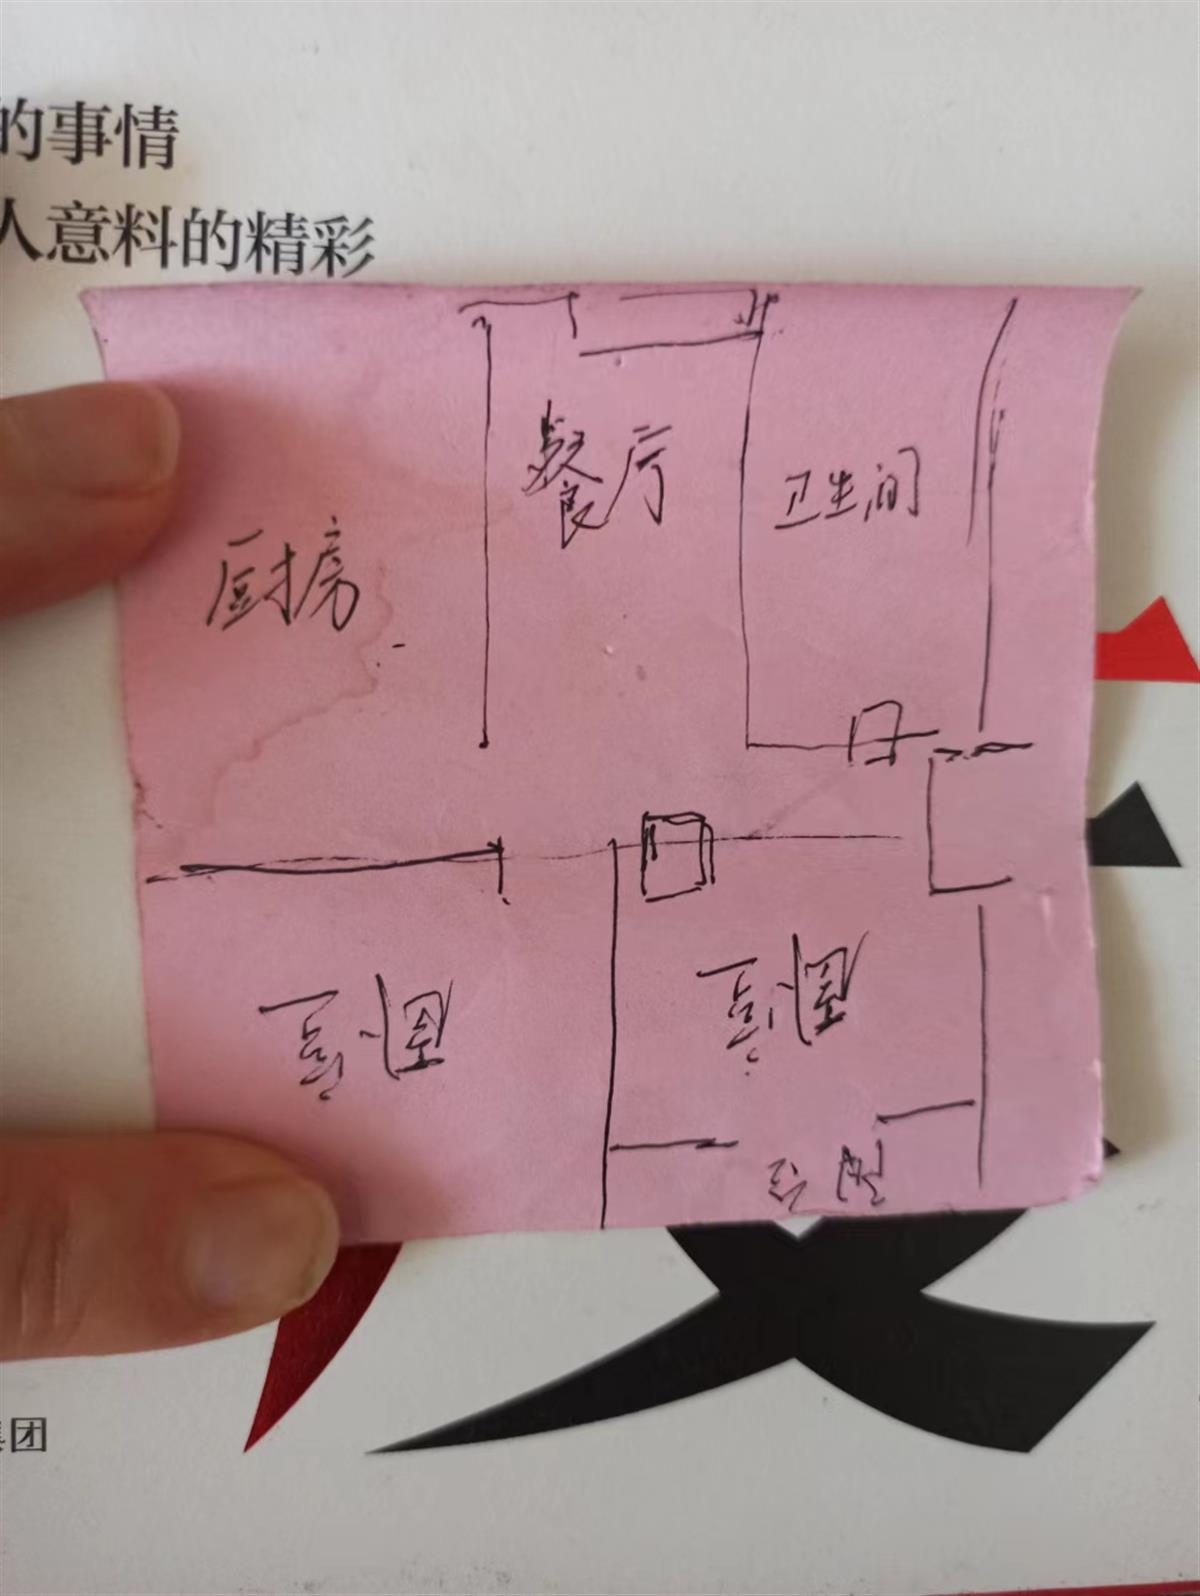 的事情
人意料的精彩
餐厅
卫生间
厨房
卧室
卧室
阳台
团